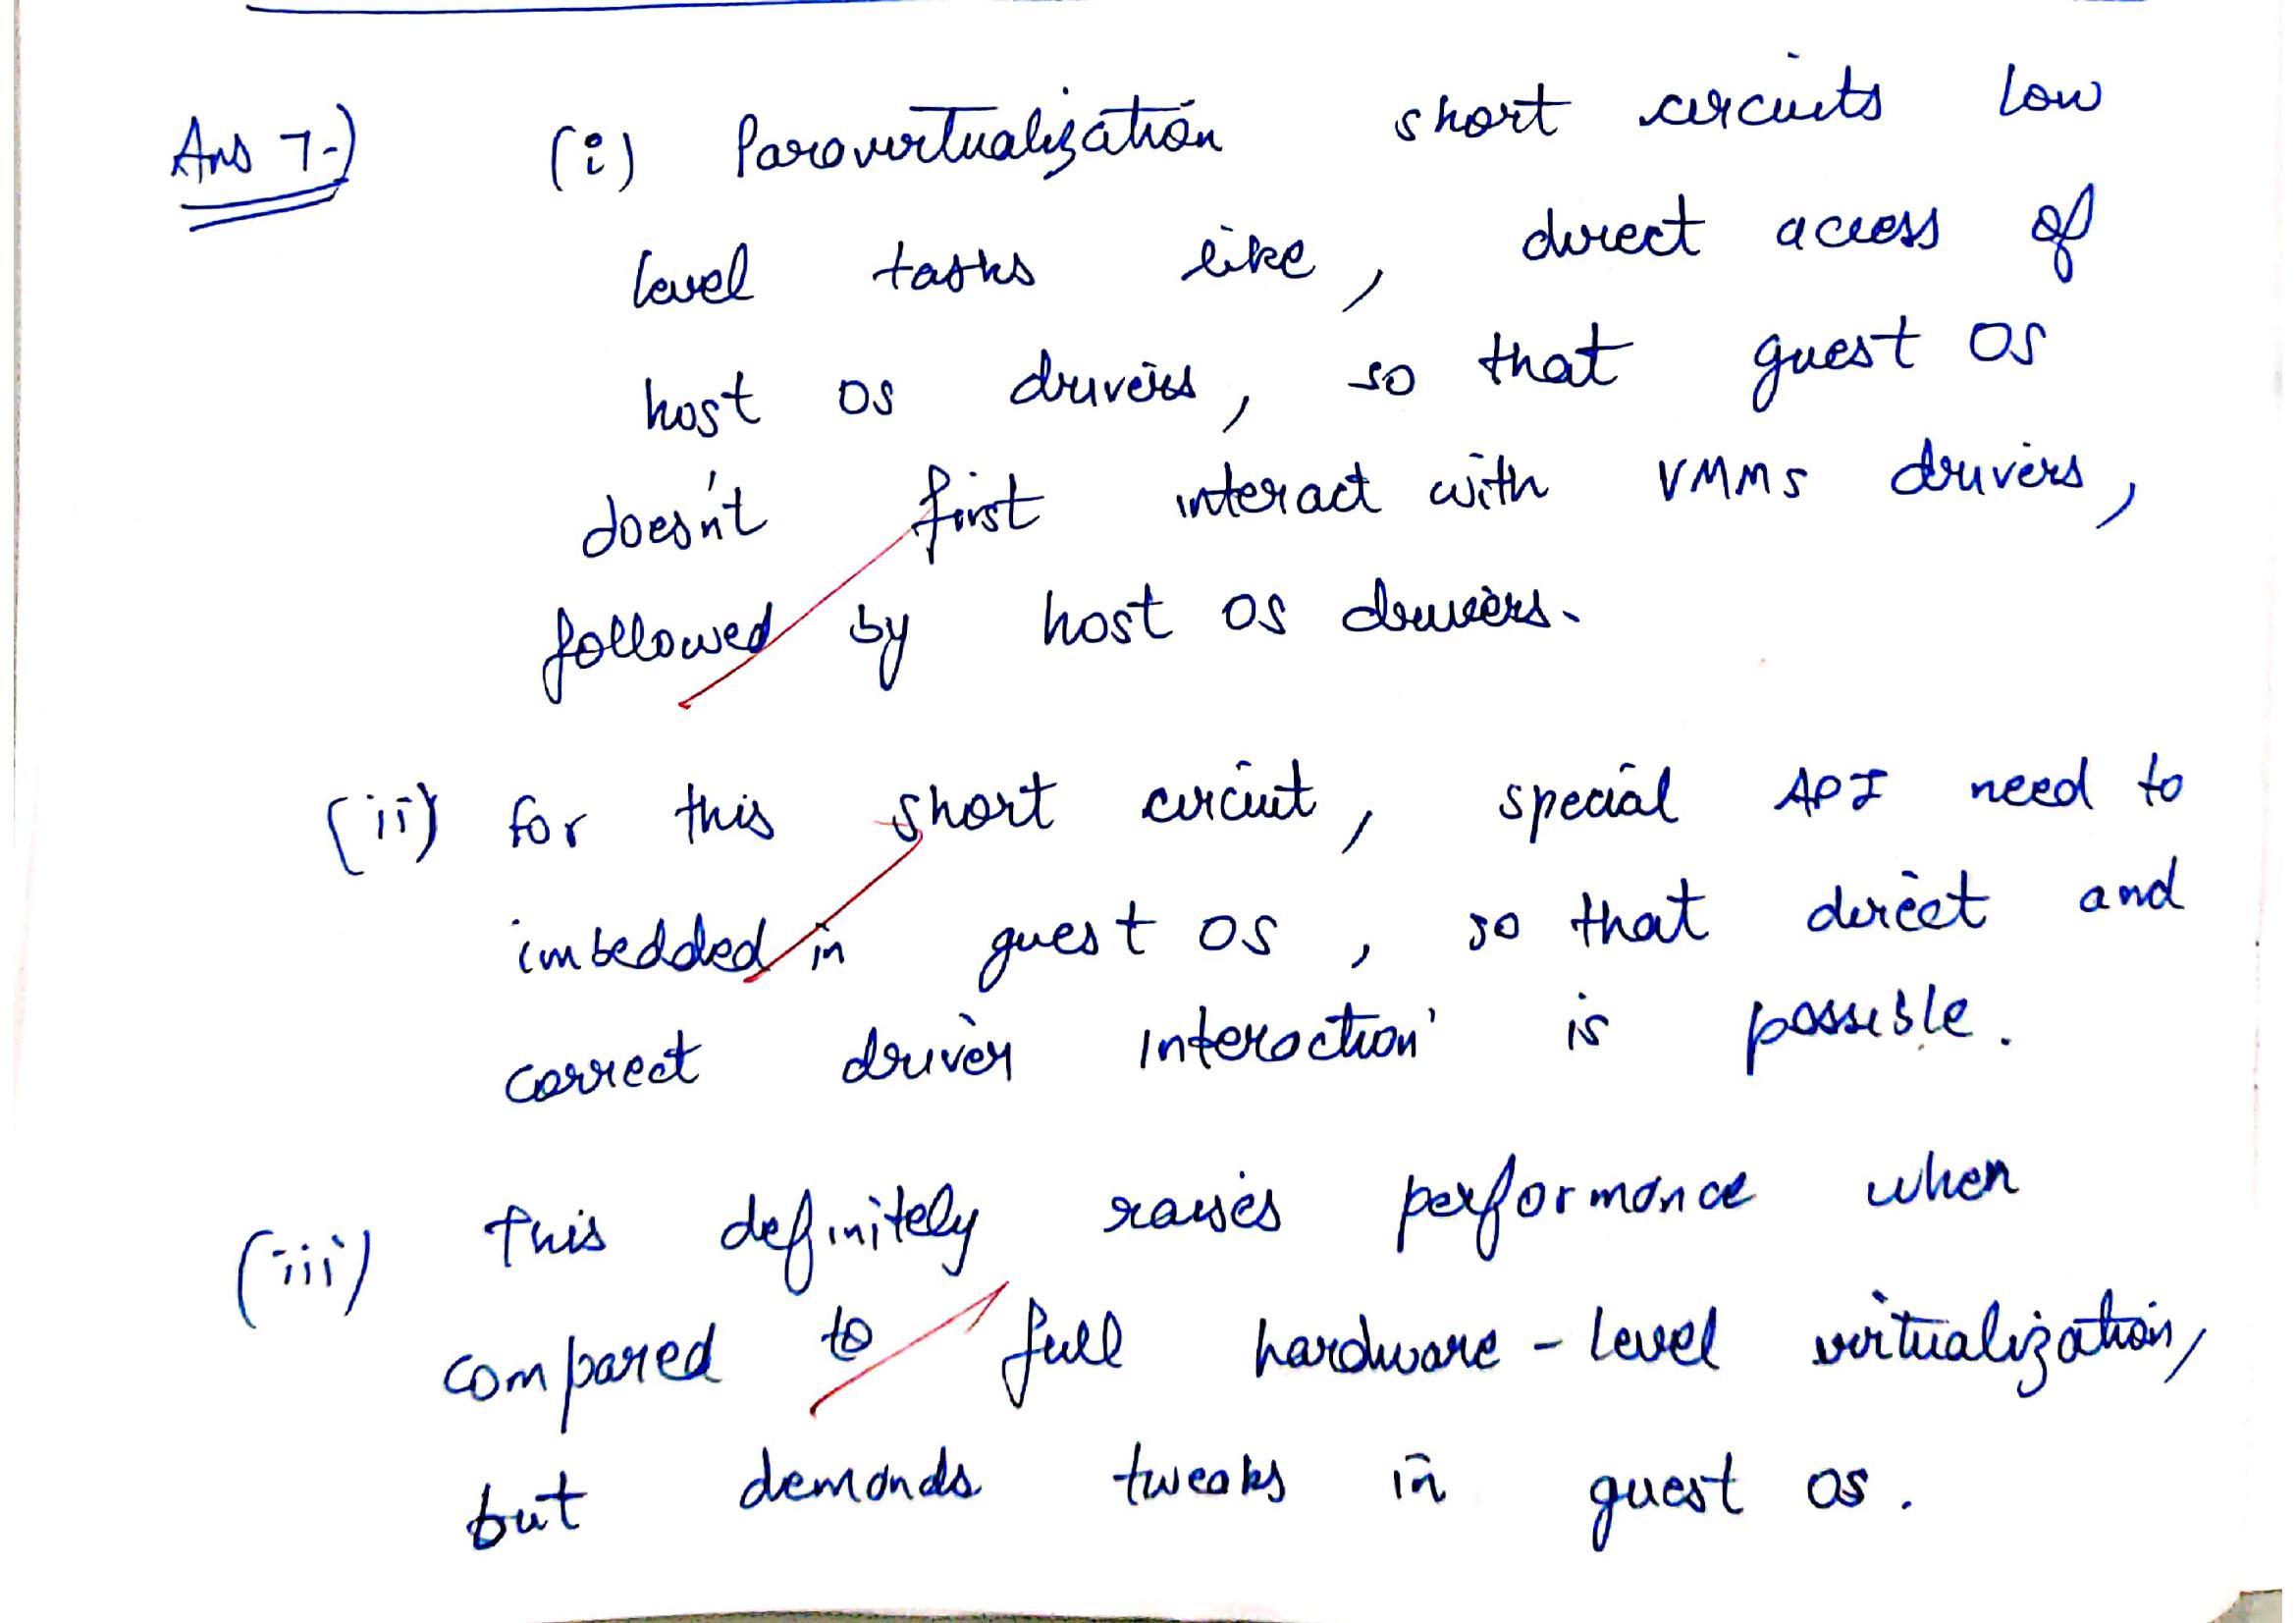 Ans 7-) (i) Paravirtualization short circuits low
level tasks like, direct access of
host OS drivers, so that guest OS
doesn't first interact with VMMs drivers,
followed by host OS drivers.
(ii) for this short circuit, special API need to
imbedded in guest OS, so that direct and
correct driver interaction is possible.
(iii) This definitely raises performance when
compared to full hardware-level virtualization,
but demands tweaks in guest OS.